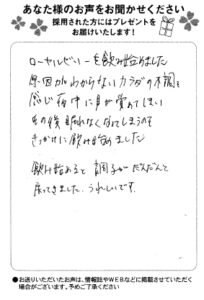 あなた様のお声をお聞かせください
採用された方にはプレゼントを
お届けいたします!
ローヤルゼリーを飲み始めました
原因がわからないカラダの不調を
感じ夜中に目が覚めてしまい
その後眠れなくなってしまうので
きっかけに飲み始めました
飲み始めると調子がだんだんと
戻ってきました。うれしいです。
●お送りいただいたお声は、情報誌やWEBなどに掲載させていただく
場合がございます。予めご了承ください